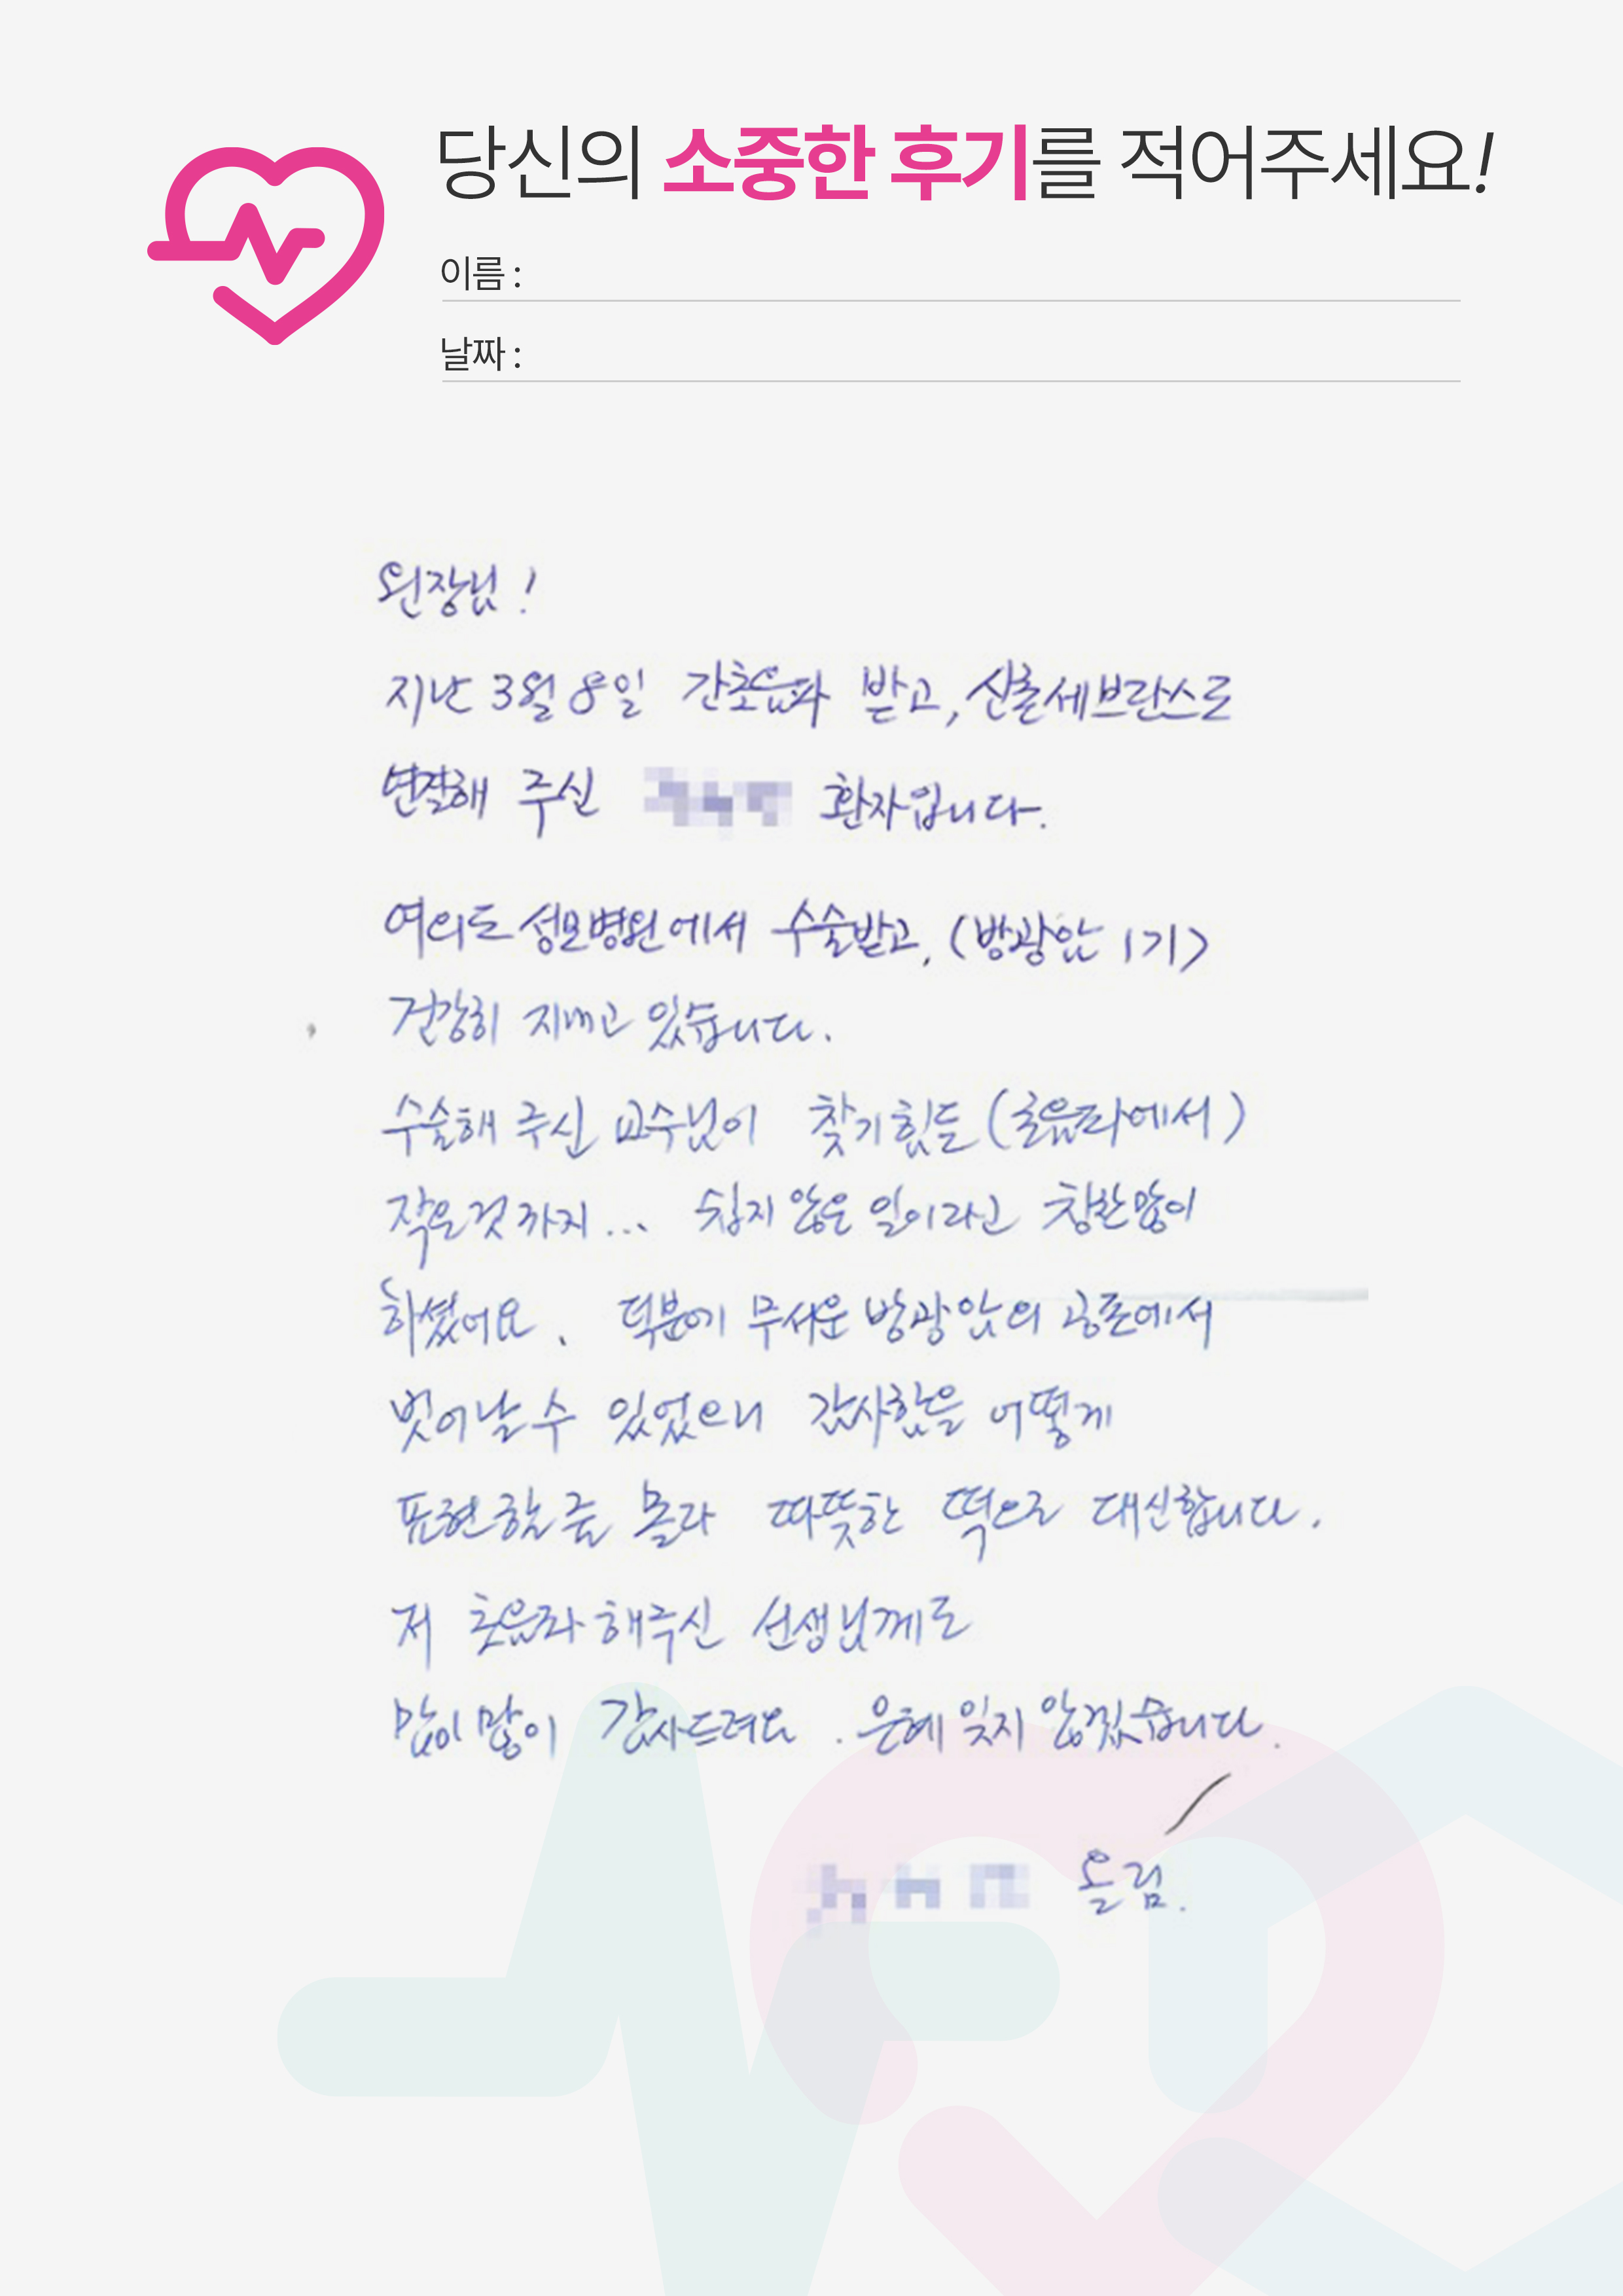 당신의 소중한 후기를 적어주세요!
이름 :
날짜 :
원장님!
지난 3월 8일 간초음파 받고, 신촌세브란스로
연결해 주신 환자입니다.
여의도 성모병원에서 수술받고, (방광암 1기)
건강히 지내고 있습니다.
수술해 주신 교수님이 찾기힘든 (초음파에서)
작은것 까지... 쉽지 않은 일이라고 칭찬많이
하셨어요. 덕분에 무서운 방광암의 공포에서
벗어날 수 있었으니 감사함을 어떻게
표현할 줄 몰라 따뜻한 떡으로 대신합니다.
저 초음파 해주신 선생님께도
많이 많이 감사드려요. 은혜 잊지 않겠습니다.
올림.